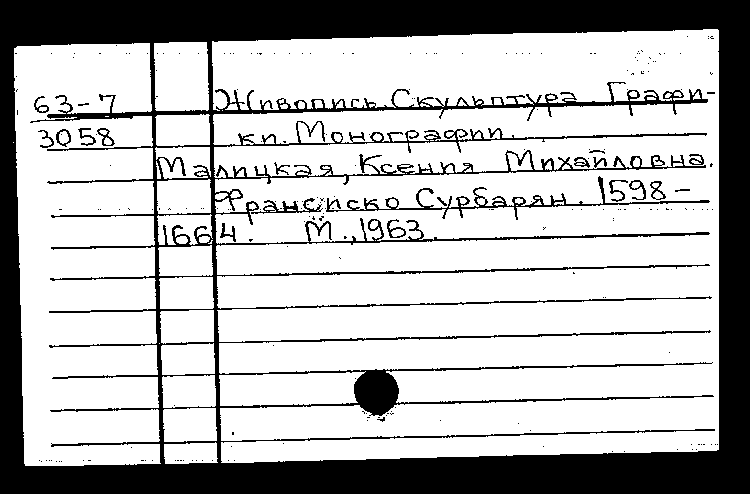 63-7 Живопись. Скульптура. Графи-
3058 ки. Монографии.
Малицкая, Ксения Михайловна.
Франсиско Сурбаран. 1598-
1664. М., 1963.